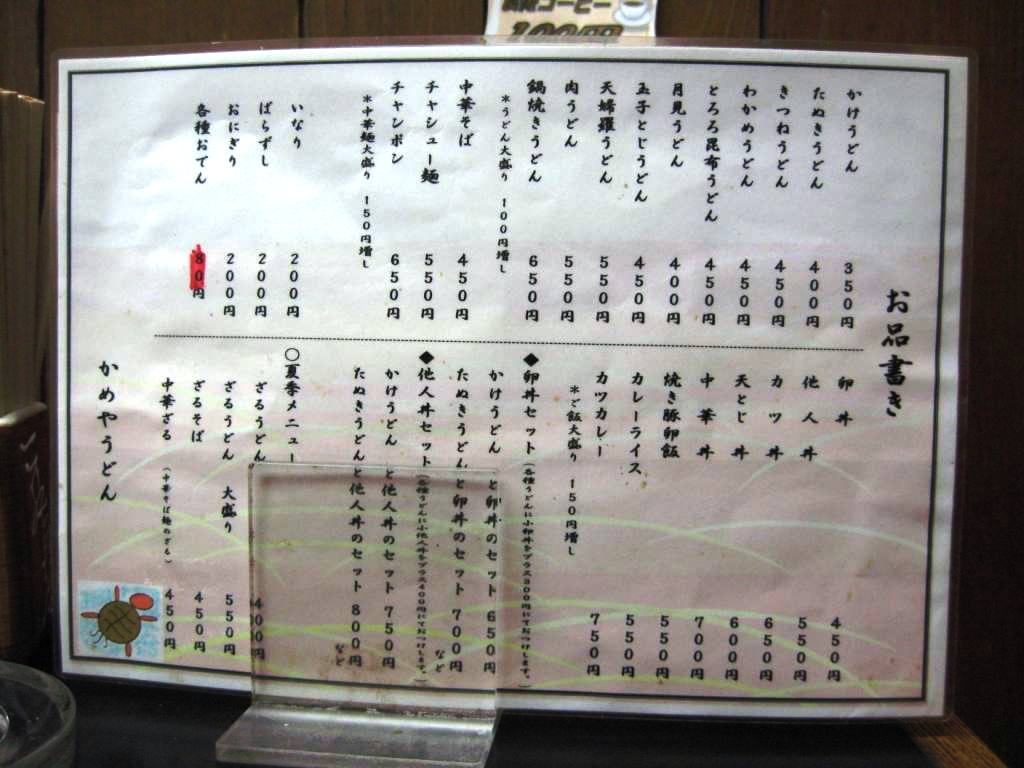 お品書き
かけうどん 350円
たぬきうどん 400円
きつねうどん 450円
わかめうどん 450円
とろろ昆布うどん 450円
月見うどん 400円
玉子とじうどん 450円
天婦羅うどん 550円
肉うどん 550円
鍋焼きうどん 650円
＊うどん大盛り 100円増し
中華そば 450円
チャシュー麺 550円
チャンポン 650円
＊中華麺大盛り 150円増し
いなり 200円
ばらずし 200円
おにぎり 200円
各種おでん 80円
卵丼 450円
他人丼 550円
カツ丼 650円
天とじ丼 600円
中華丼 700円
焼き豚卵飯 550円
カレーライス 550円
カツカレー 750円
＊ご飯大盛り 150円増し
◆卵丼セット（各種うどんに小卵丼をプラス300円にておつけします。）
かけうどん と卵丼のセット 650円
たぬきうどんと卵丼のセット 700円 など
◆他人丼セット（各種うどんに小他人丼をプラス400円にておつけします。）
かけうどん と他人丼のセット 750円
たぬきうどんと他人丼のセット 800円 など
○夏季メニュー
ざるうどん 400円
ざるうどん 大盛り 550円
ざるそば 450円
中華ざる （中華そば麺のざる） 450円
かめやうどん
コーヒー
100円